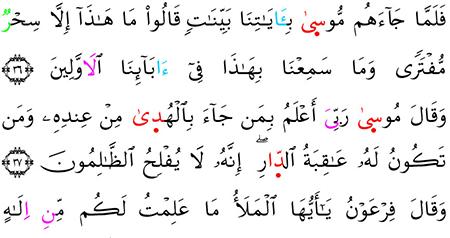 فَلَمَّا جَآءَهُم مُّوسىٰ بِـَٔايَٰتِنَا بَيِّنَٰتٖ قَالُواْ مَا هَٰذَآ إِلَّا سِحۡرٞ
مُّفۡتَرٗى وَمَا سَمِعۡنَا بِهَٰذَا فِيٓ ءَابَآئِنَا ٱلَاوَّلِينَ ٣٦
وَقَالَ مُوسىٰ رَبِّيَ أَعۡلَمُ بِمَن جَآءَ بِٱلۡهُدىٰ مِنۡ عِندِهِۦ وَمَن
تَكُونُ لَهُۥ عَٰقِبَةُ ٱلدّ۪ارِۖ إِنَّهُۥ لَا يُفۡلِحُ ٱلظَّٰلِمُونَ ٣٧
وَقَالَ فِرۡعَوۡنُ يَٰٓأَيُّهَا ٱلۡمَلَأُ مَا عَلِمۡتُ لَكُم مِّنِ اِلَٰهٍ